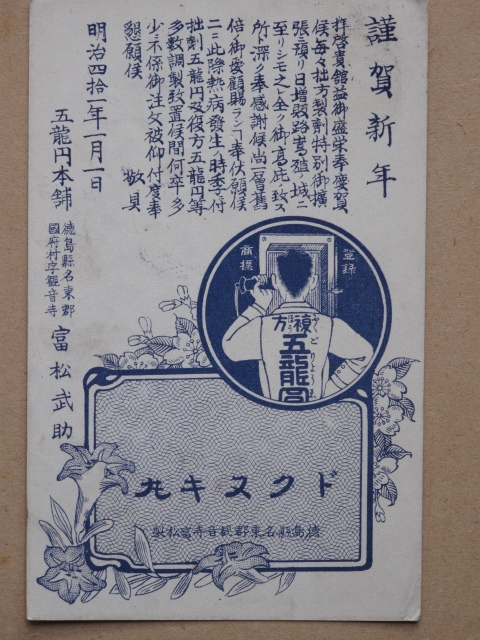 謹賀新年
拝啓貴館益御盛栄奉慶賀
候毎々拙方製剤特別御擴
張ヲ預リ日増販路嵩殖ノ城ニ
至リシモ之レ全ク御高庇ノ致ス
所ト深ク奉感謝候尚一層旧
倍御愛顧賜ランコヿ奉伏願候
二ニ此際熱病發生ノ時季ニ付
拙剤五龍円又復方五龍円等
多数調製致置候間何卒多
少ニ不係御注文被仰付度奉
懇願候 敬具
明治四拾一年一月一日
五龍円本舗
徳島縣名東郡
國府村字観音寺
富松武助
登録
商標
複方
五龍圓
ドクヌキ丸
徳島縣名東郡観音寺富松製